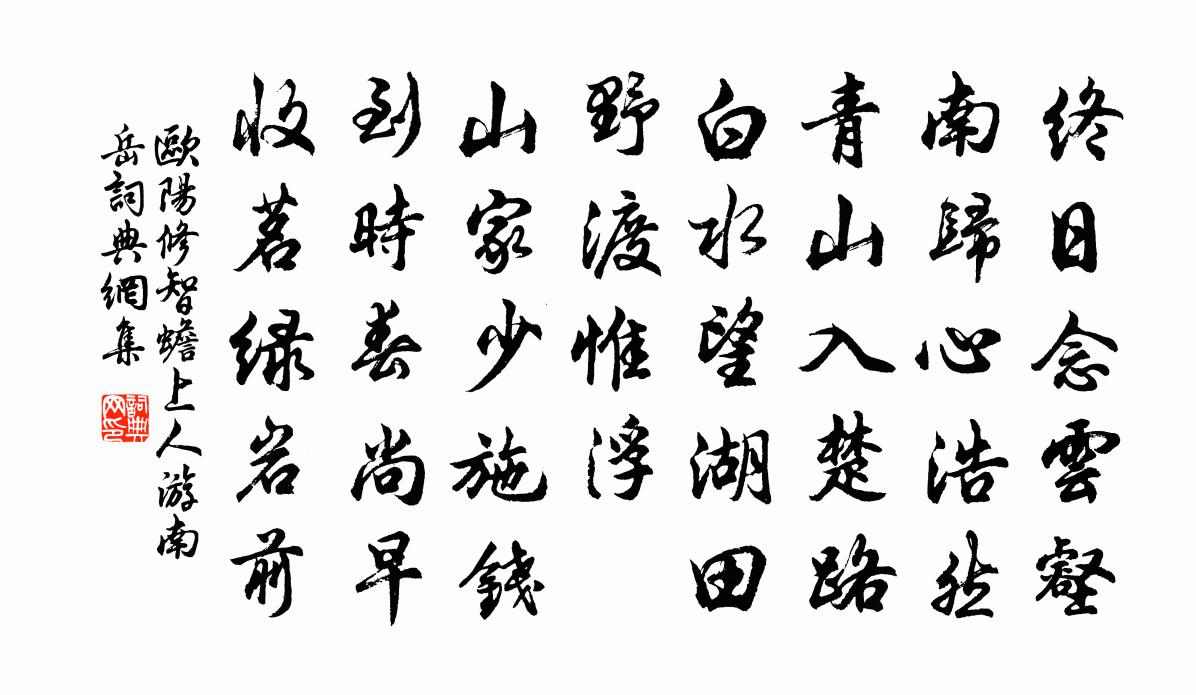 終日念雲壑
南歸心浩然
青山入楚路
白水望湖田
野渡惟浮
山家少施錢
到時春尚早
收茗緑岩前
歐陽修智蟾上人游南
岳詞典網集
詞典
网印